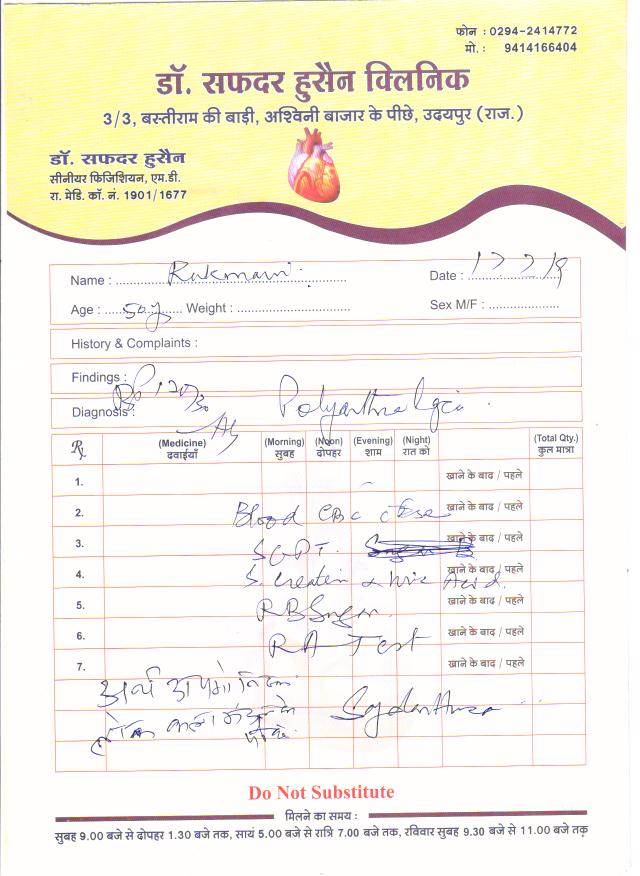 फोन : 0294-2414772
मो. : 9414166404
डॉ. सफदर हुसैन क्लिनिक
3/3, बस्तीराम की बाड़ी, अश्विनी बाजार के पीछे, उदयपुर (राज.)
डॉ. सफदर हुसैन
सीनीयर फिजिशियन, एम.डी.
रा. मेडि. कॉ. नं. 1901/1677
Name : Rukmani Date :
Age : 50 y Weight : Sex M/F :
History & Complaints :
Findings :
Diagnosis : Polyarthralgia
Rx (Medicine) (Morning) (Noon) (Evening) (Night) (Total Qty.)
दवाईयाँ सुबह दोपहर शाम रात को कुल मात्रा
1. खाने के बाद / पहले
2. Blood CBC खाने के बाद / पहले
3. SGPT. खाने के बाद / पहले
4. S. Creatin & Uric Acid. खाने के बाद / पहले
5. RBSugar खाने के बाद / पहले
6. RA Test खाने के बाद / पहले
7. खाने के बाद / पहले
Do Not Substitute
मिलने का समय :
सुबह 9.00 बजे से दोपहर 1.30 बजे तक, सायं 5.00 बजे से रात्रि 7.00 बजे तक, रविवार सुबह 9.30 बजे से 11.00 बजे तक